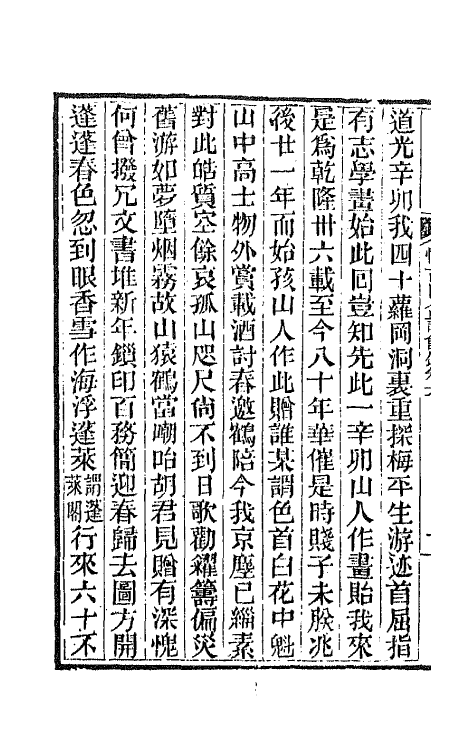 道光辛卯我四十蘿岡洞裏重探梅平生游迹首屈指
有志學畫始此回豈知先此一辛卯山人作畫貽我來
是為乾隆卅六載至今八十年華催是時賤子未朕兆
後廿一年而始孩山人作此贈誰某謂色首白花中魁
山中高士物外賞載酒討春邀鶴陪今我京塵已緇素
對此皓質空餘哀孤山咫尺尙不到日歌勸糴籌偏災
舊游如夢墮烟霧故山猿鶴當嘲咍胡君見贈有深愧
何曾撥冗文書堆新年鎖印百務簡迎春歸去圖方開
蓬蓬春色忽到眼香雪作海浮蓬萊謂蓬萊閣行來六十不